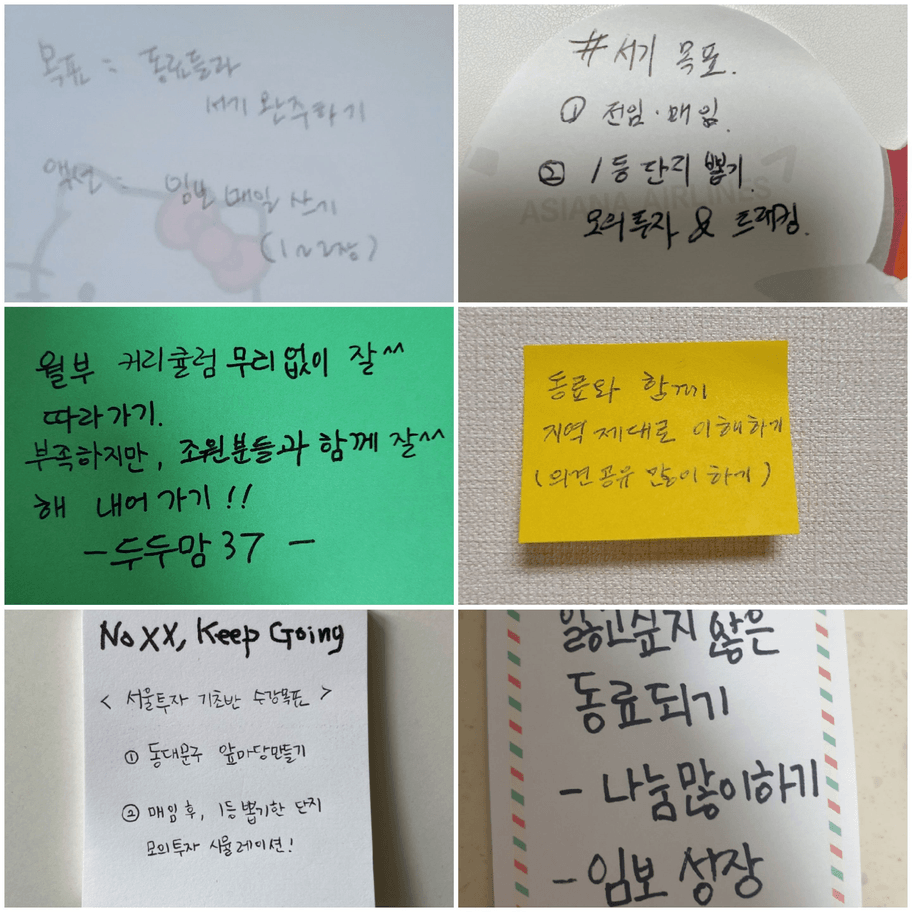 목표 : 동료들과
서기 완주하기
액션 : 임보 매일 쓰기
(1~2장)
# 서기 목표.
① 전임·매임.
② 1등 단지 뽑기.
ASIANA AIRLINES
모의투자 & 트래킹.
월부 커리큘럼 무리없이 잘^^
따라가기.
부족하지만, 조원분들과 함께 잘^^
해 내어 가기!!
- 두두망 37 -
동료와 함께
지역 제대로 이해하기
(의견공유 많이 하기)
No XX, Keep Going
< 서울투자 기초반 수강목표 >
① 동대문구 앞마당만들기
② 매임 후, 1등뽑기한 단지
모의투자 시뮬레이션!
잃고싶지 않은
동료되기
- 나눔많이하기
- 임보 성장